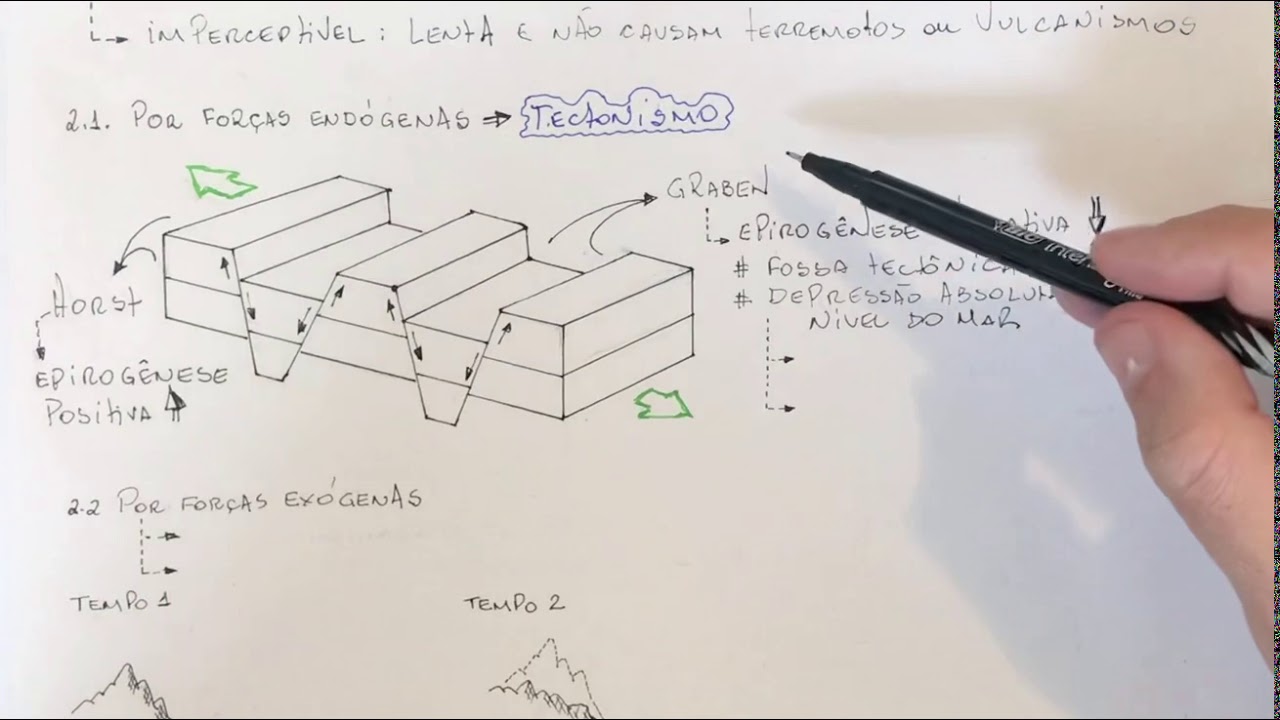 imPERCEPTÍVEL: LENTA E NÃO CAUSAM TERREMOTOS OU VULCANISMOS
2.1. POR FORÇAS ENDÓGENAS ⇒ TECTONISMO
GRABEN
EPIROGÊNESE
# FOSSA TECTÔNICA
# DEPRESSÃO
NÍVEL DO MAR
HORST
EPIROGÊNESE
POSITIVA
2.2 POR FORÇAS EXÓGENAS
TEMPO 1
TEMPO 2